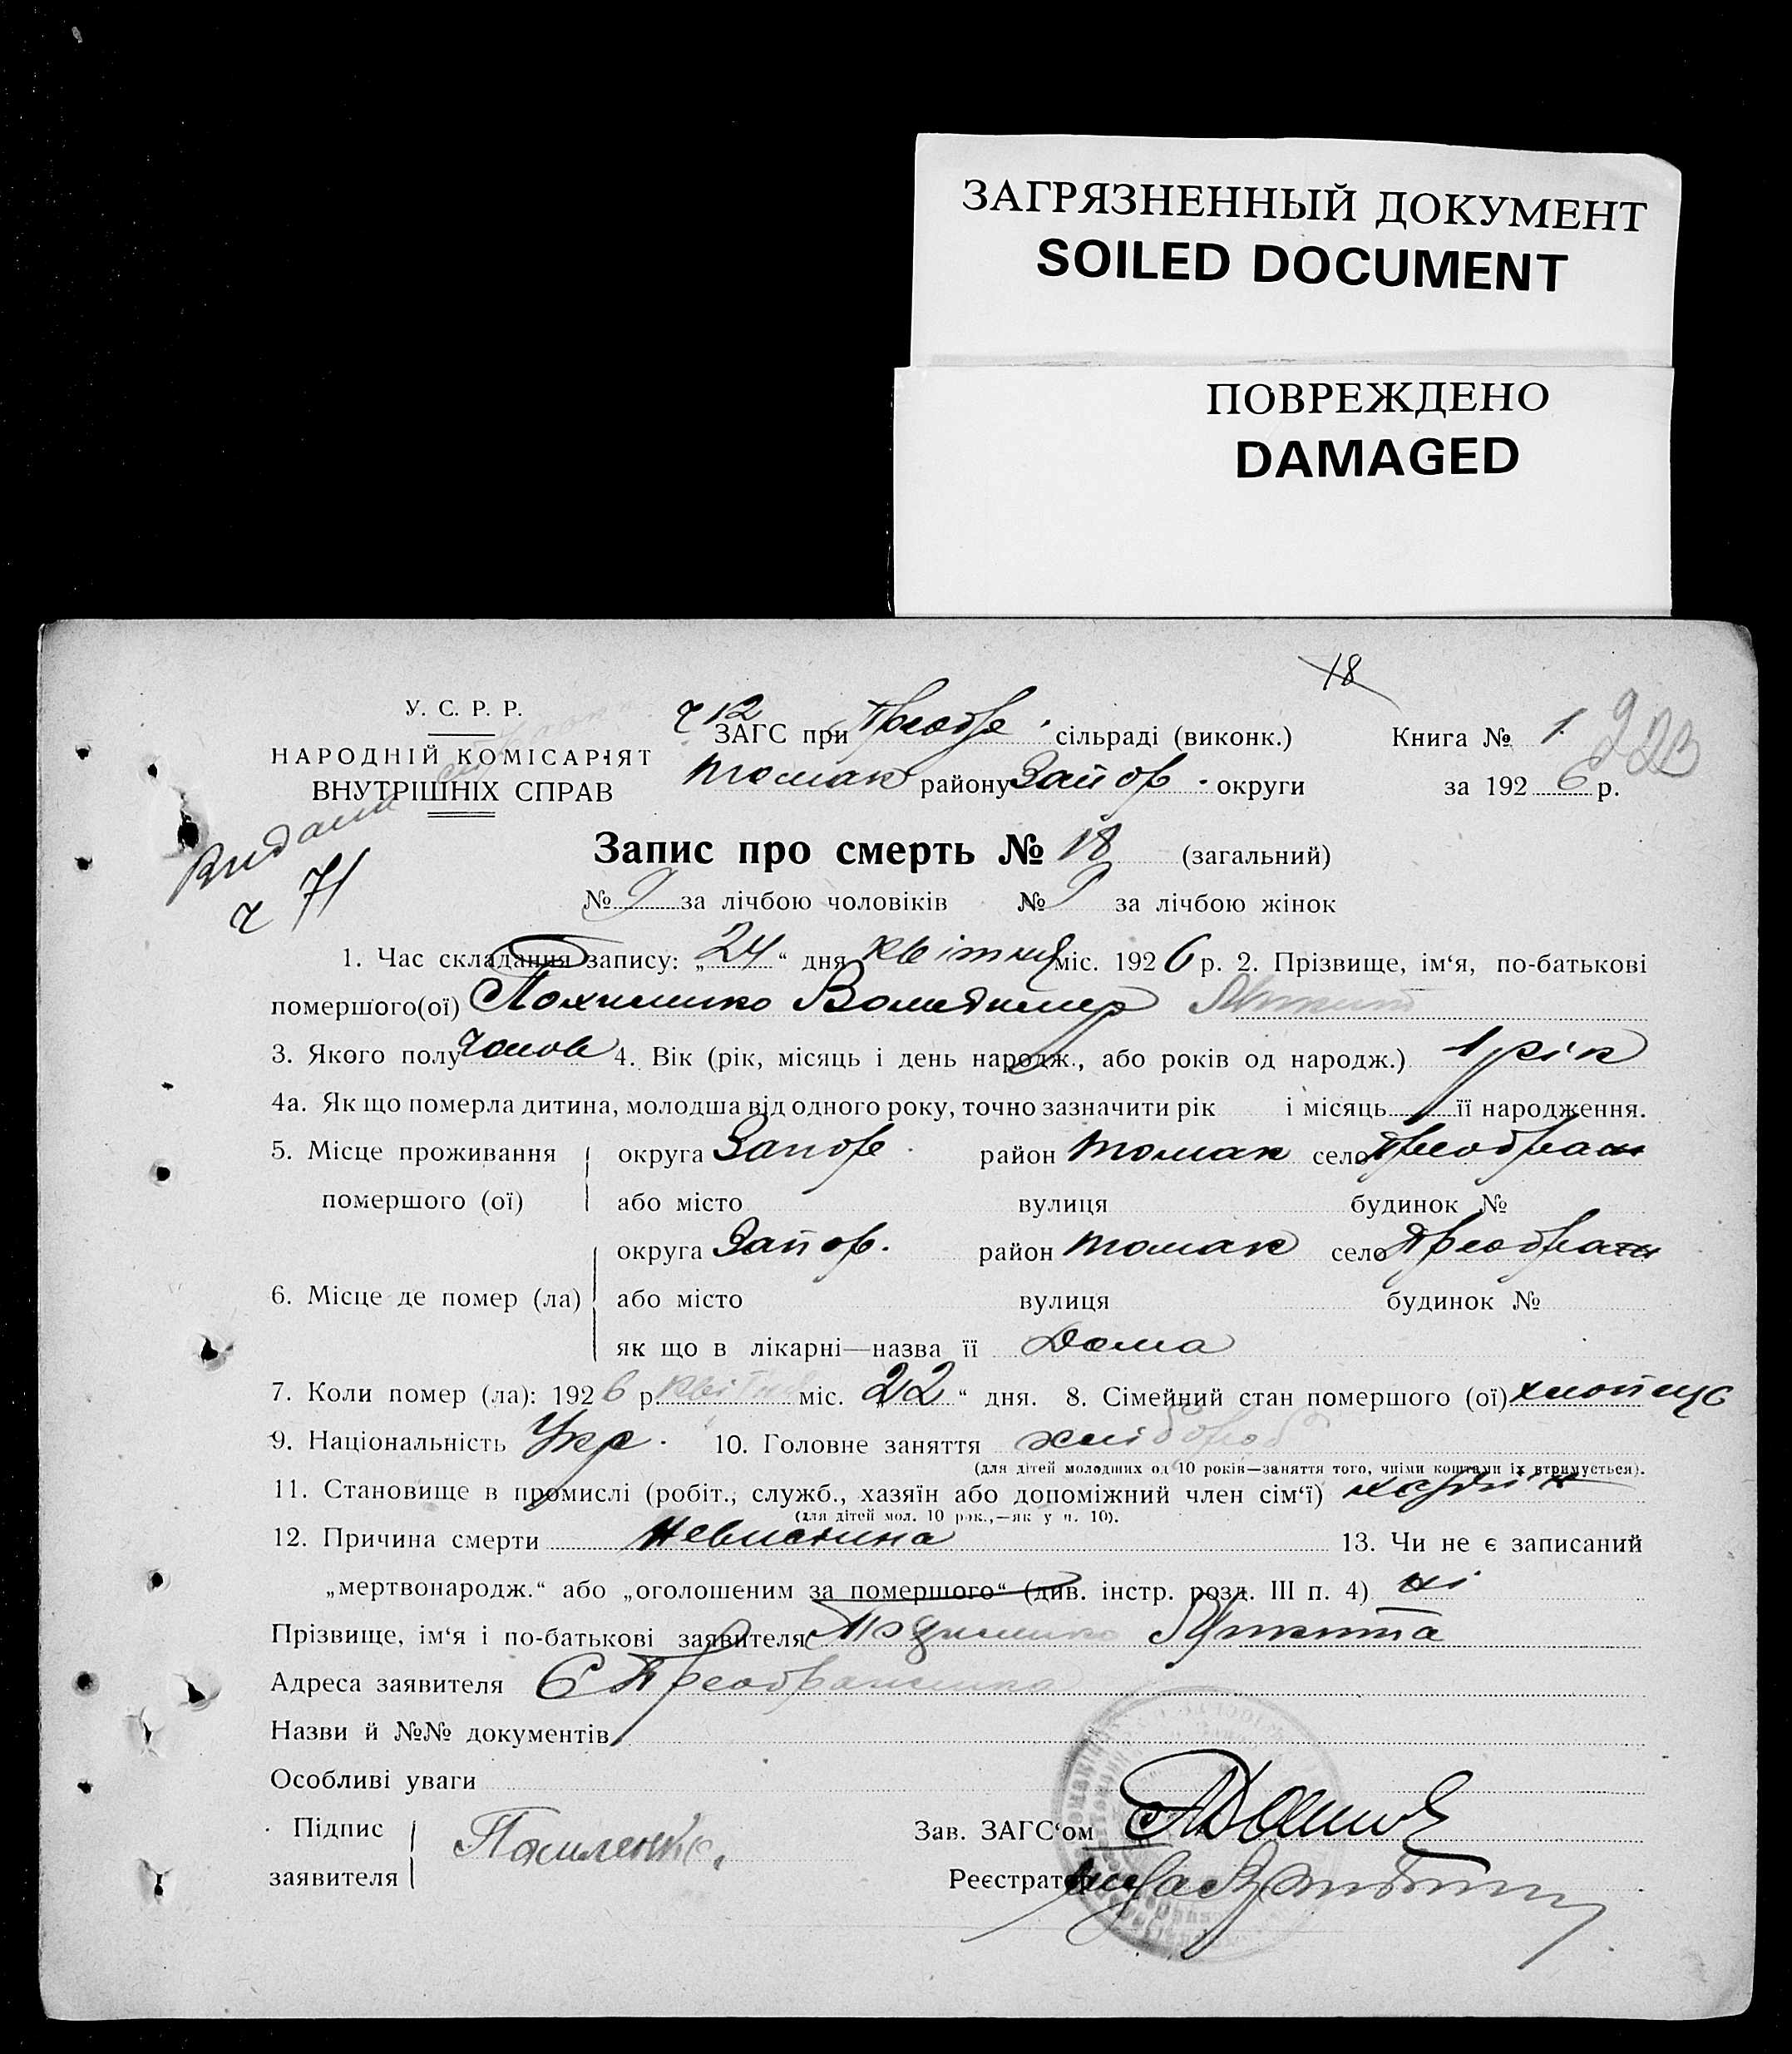 ЗАГРЯЗНЕННЫЙ ДОКУМЕНТ
SOILED DOCUMENT
ПОВРЕЖДЕНО
DAMAGED
18
У. С. Р. Р.
НАРОДНІЙ КОМІСАРІЯТ
ВНУТРІШНІХ СПРАВ
ЗАГС при Преобр. сільраді (виконк.)
Токмак району Запор. округи
Книга № 1
за 1926 р.
Видани
ч 71
Запис про смерть № 18 (загальний)
№ 9 за лічбою чоловіків № 9 за лічбою жінок
1. Час складання запису: „24“ дня квітня міс. 1926 р. 2. Прізвище, ім‘я, по-батькові
помершого(ої) Володимир
3. Якого полу чолов 4. Вік (рік, місяць і день народж., або років од народж.) 1 рік
4а. Як що померла дитина, молодша від одного року, точно зазначити рік і місяць її народження.
5. Місце проживання помершого (ої) округа Запор. район Токмак село Преображ
або місто вулиця будинок №
6. Місце де помер (ла) округа Запор. район Токмак село Преображ
або місто вулиця будинок №
як що в лікарні—назва її Дома
7. Коли помер (ла): 1926 р. квітня міс. „22“ дня. 8. Сімейний стан помершого (ої) хлопець
9. Національність Укр. 10. Головне заняття хлібороб
(для дітей молодших од 10 років—заняття того, чиїми коштами їх втримується).
11. Становище в промислі (робіт., служб., хазяїн або допоміжний член сім‘ї) хазяїн
(для дітей мол. 10 рок.,—як у п. 10).
12. Причина смерти Невистина 13. Чи не є записаний
„мертвонародж.“ або „оголошеним за помершого“ (див. інстр. розд. III п. 4) ні
Прізвище, ім‘я і по-батькові заявителя Микита
Адреса заявителя С Преображенка
Назви й №№ документів
Особливі уваги
Підпис заявителя
Зав. ЗАГС‘ом
Реєстратор